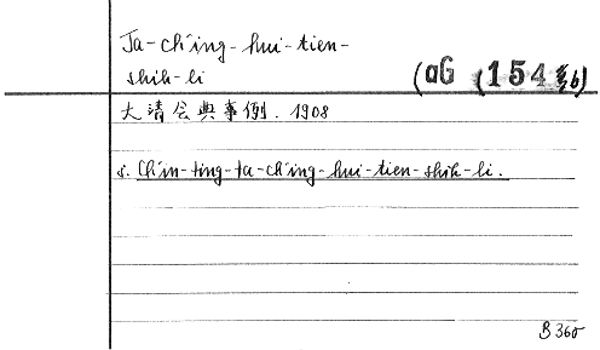 Ta-ch'ing-hui-tien-
shih-li
(aG (154
大清会典事例. 1908
s. Chin-ting-ta-ch'ing-hui-tien-shih-li.
B 360